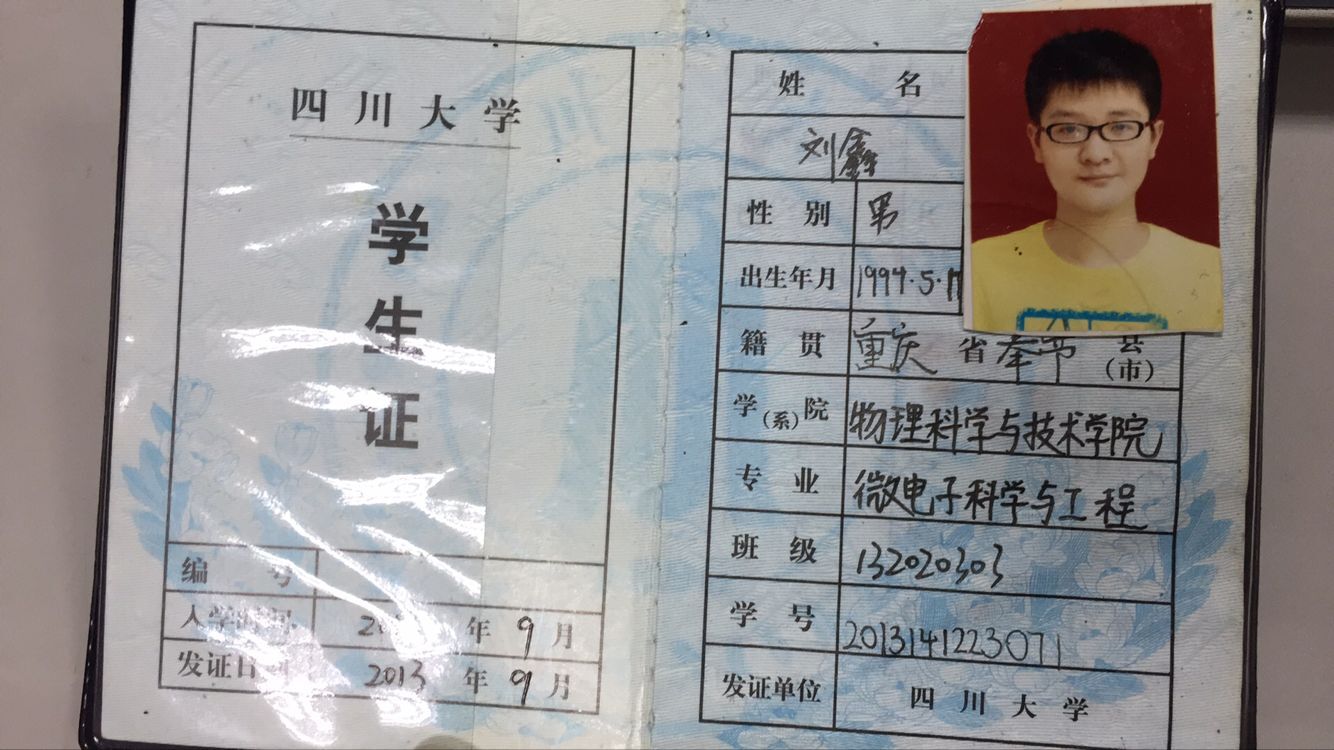 四川大学
学
生
证
编 号
入学时间 年 9 月
发证日期 2013 年 9 月
姓 名
刘鑫
性 别 男
出生年月 1994·5·17
籍 贯 重庆 省 奉节 县(市)
学(系)院 物理科学与技术学院
专 业 微电子科学与工程
班 级 132020303
学 号 2013141223071
发证单位 四川大学